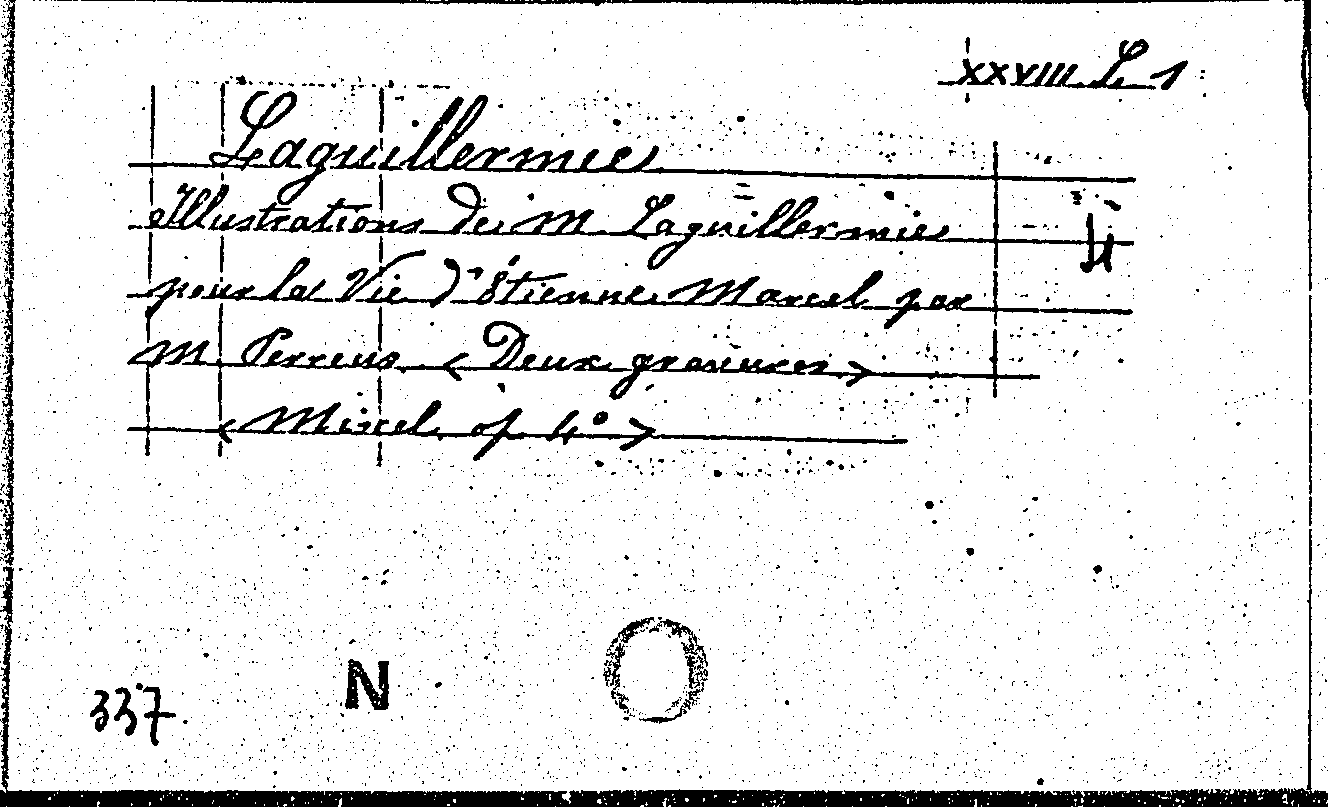 XXVIII L 1
Laguillermie
Illustrations de M Laguillermie
4
pour la Vie d'Étienne Marcel par
M Perrens < Deux gravures >
< Miscel of 4° >
N
337.